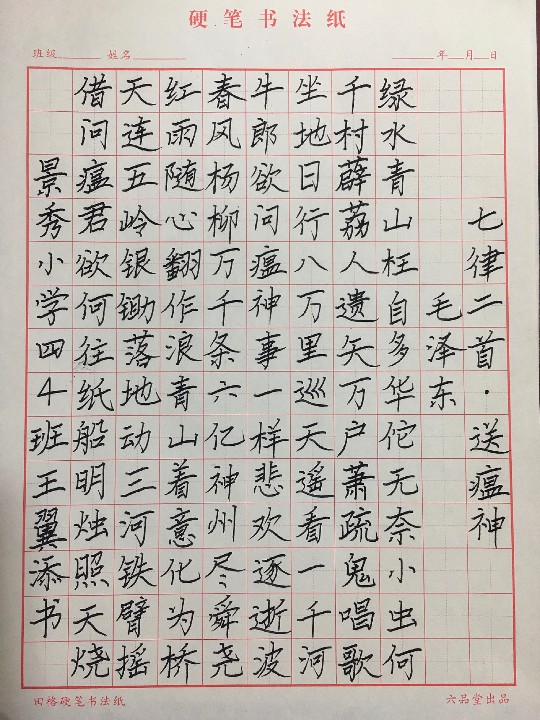 硬笔书法纸
班级 姓名 年 月 日
七律二首·送瘟神
毛泽东
绿水青山枉自多华佗无奈小虫何
千村薜荔人遗矢万户萧疏鬼唱歌
坐地日行八万里巡天遥看一千河
牛郎欲问瘟神事一样悲欢逐逝波
春风杨柳万千条六亿神州尽舜尧
红雨随心翻作浪青山着意化为桥
天连五岭银锄落地动三河铁臂摇
借问瘟君欲何往纸船明烛照天烧
景秀小学四4班王翼添书
田格硬笔书法纸 六品堂出品